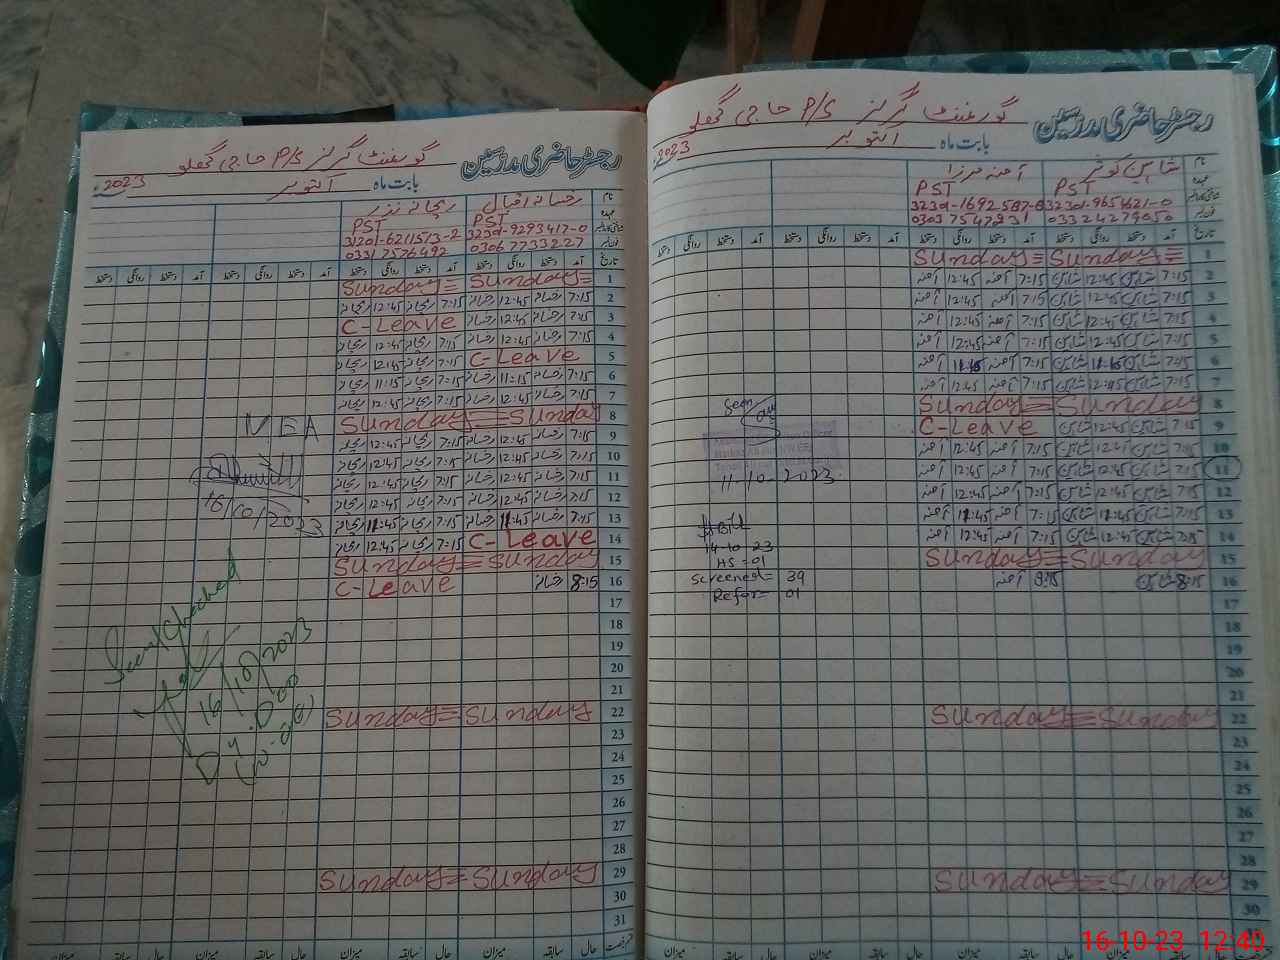 رجسٹر حاضری مدرسین گورنمنٹ گرلز P/S حاجی گھلو
بابت ماہ اکتوبر 2023ء
نام رخسانہ اقبال ریحانہ نذر
عہدہ PST PST
32304-9293417-0 31201-6211513-2
0306 7733227 03317576492
تاریخ آمد دستخط روانگی دستخط آمد دستخط روانگی دستخط آمد دستخط روانگی دستخط آمد دستخط روانگی دستخط
1 Sunday Sunday
2 7:15 رخسانہ 12:45 رخسانہ 7:15 ریحانہ 12:45 ریحانہ
3 7:15 رخسانہ 12:45 رخسانہ C-Leave
4 7:15 رخسانہ 12:45 رخسانہ 7:15 ریحانہ 12:45 ریحانہ
5 C-Leave 7:15 ریحانہ 12:45 ریحانہ
6 7:15 رخسانہ 11:15 رخسانہ 7:15 ریحانہ 11:15 ریحانہ
7 7:15 رخسانہ 12:45 رخسانہ 7:15 ریحانہ 12:45 ریحانہ
8 Sunday Sunday
9 7:15 رخسانہ 12:45 رخسانہ 7:15 ریحانہ 12:45 ریحانہ
10 7:15 رخسانہ 12:45 رخسانہ 7:15 ریحانہ 12:45 ریحانہ
11 7:15 رخسانہ 12:45 رخسانہ 7:15 ریحانہ 12:45 ریحانہ
12 7:15 رخسانہ 12:45 رخسانہ 7:15 ریحانہ 12:45 ریحانہ
13 7:15 رخسانہ 11:45 رخسانہ 7:15 ریحانہ 11:45 ریحانہ
14 C-Leave 7:15 ریحانہ 12:45 ریحانہ
15 Sunday Sunday
16 8:15 رخسانہ C-Leave
17
18
19
20
21
22 Sunday Sunday
23
24
25
26
27
28
29 Sunday Sunday
30
31
رخصت حال سابقہ میزان حال سابقہ میزان حال سابقہ میزان
MEA
16/10/2023
Seen/Checked
16/10/2023
Dy. DEO
رجسٹر حاضری مدرسین گورنمنٹ گرلز P/S حاجی گھلو
بابت ماہ اکتوبر 2023ء
نام شاہین کوثر آمنہ مرزا
عہدہ PST PST
32301-9654621-0 32304-1692587-8
0332 4279050 0303 7547231
تاریخ آمد دستخط روانگی دستخط آمد دستخط روانگی دستخط آمد دستخط روانگی دستخط آمد دستخط روانگی دستخط
1 Sunday Sunday
2 7:15 شاہین 12:45 شاہین 7:15 آمنہ 12:45 آمنہ
3 7:15 شاہین 12:45 شاہین 7:15 آمنہ 12:45 آمنہ
4 7:15 شاہین 12:45 شاہین 7:15 آمنہ 12:45 آمنہ
5 7:15 شاہین 12:45 شاہین 7:15 آمنہ 12:45 آمنہ
6 7:15 شاہین 11:15 شاہین 7:15 آمنہ 11:15 آمنہ
7 7:15 شاہین 12:45 شاہین 7:15 آمنہ 12:45 آمنہ
8 Sunday Sunday
9 7:15 شاہین 12:45 شاہین C-Leave
10 7:15 شاہین 12:45 شاہین 7:15 آمنہ 12:45 آمنہ
11 7:15 شاہین 12:45 شاہین 7:15 آمنہ 12:45 آمنہ
12 7:15 شاہین 12:45 شاہین 7:15 آمنہ 12:45 آمنہ
13 7:15 شاہین 11:45 شاہین 7:15 آمنہ 11:45 آمنہ
14 7:15 شاہین 12:45 شاہین 7:15 آمنہ 12:45 آمنہ
15 Sunday Sunday
16 8:15 شاہین 8:15 آمنہ
17
18
19
20
21
22 Sunday Sunday
23
24
25
26
27
28
29 Sunday Sunday
30
حال سابقہ میزان حال سابقہ میزان حال سابقہ میزان
Seen
11-10-2023
14-10-23
HS=01
Screened= 39
Refer= 01
16-10-23 12:40